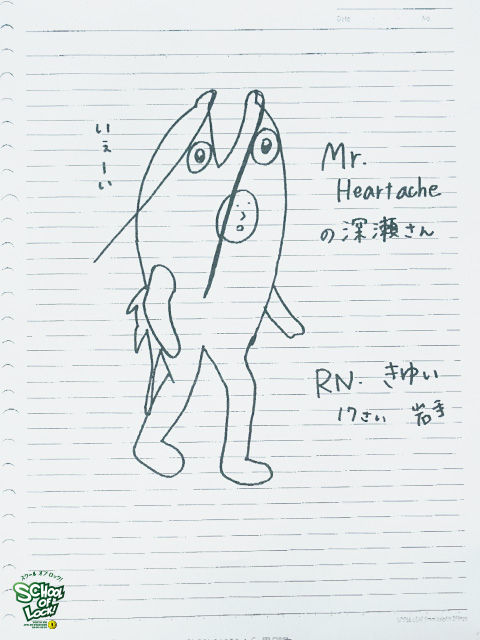 Date
No
いぇーい
Mr.
Heartache
の深瀬さん
RN. きゆい
17さい 岩手
スクール オブ ロック!
SCHOOL
OF
LOCK!